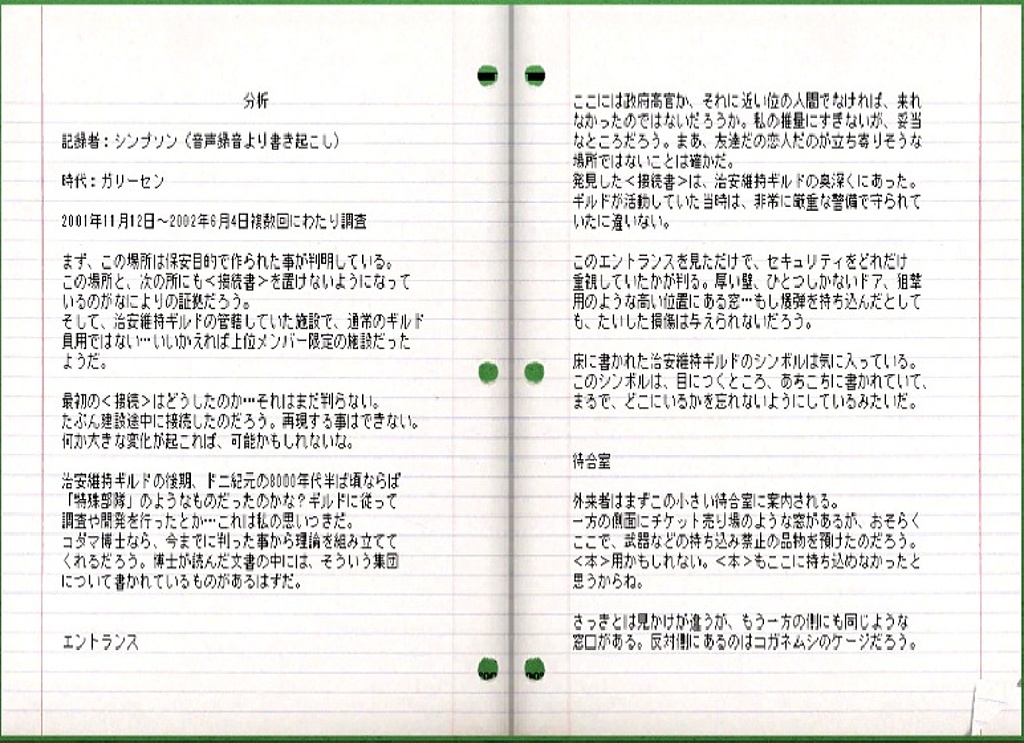 分析
記録者：シンプソン（音声録音より書き起こし）
時代：ガリーセン
2001年11月12日～2002年6月4日複数回にわたり調査
まず、この場所は保安目的で作られた事が判明している。
この場所と、次の所にも＜接続書＞を置けないようになって
いるのがなによりの証拠だろう。
そして、治安維持ギルドの管轄していた施設で、通常のギルド
員用ではない…いいかえれば上位メンバー限定の施設だった
ようだ。
最初の＜接続＞はどうしたのか…それはまだ判らない。
たぶん建設途中に接続したのだろう。再現する事はできない。
何か大きな変化が起これば、可能かもしれないな。
治安維持ギルドの後期、ドニ紀元の8000年代半ば頃ならば
「特殊部隊」のようなものだったのかな？ギルドに従って
調査や開発を行ったとか…これは私の思いつきだ。
コダマ博士なら、今までに判った事から理論を組み立てて
くれるだろう。博士が読んだ文書の中には、そういう集団
について書かれているものがあるはずだ。
エントランス
ここには政府高官か、それに近い位の人間でなければ、来れ
なかったのではないだろうか。私の推量にすぎないが、妥当
なところだろう。まあ、友達だの恋人だのが立ち寄りそうな
場所ではないことは確かだ。
発見した＜接続書＞は、治安維持ギルドの奥深くにあった。
ギルドが活動していた当時は、非常に厳重な警備で守られて
いたに違いない。
このエントランスを見ただけで、セキュリティをどれだけ
重視していたかが判る。厚い壁、ひとつしかないドア、狙撃
用のような高い位置にある窓…もし爆弾を持ち込んだとして
も、たいした損傷は与えられないだろう。
床に書かれた治安維持ギルドのシンボルは気に入っている。
このシンボルは、目につくところ、あちこちに書かれていて、
まるで、どこにいるかを忘れないようにしているみたいだ。
待合室
外来者はまずこの小さい待合室に案内される。
一方の側面にチケット売り場のような窓があるが、おそらく
ここで、武器などの持ち込み禁止の品物を預けたのだろう。
＜本＞用かもしれない。＜本＞もここに持ち込めなかったと
思うからね。
さっきとは見かけが違うが、もう一方の側にも同じような
窓口がある。反対側にあるのはコガネムシのケージだろう。